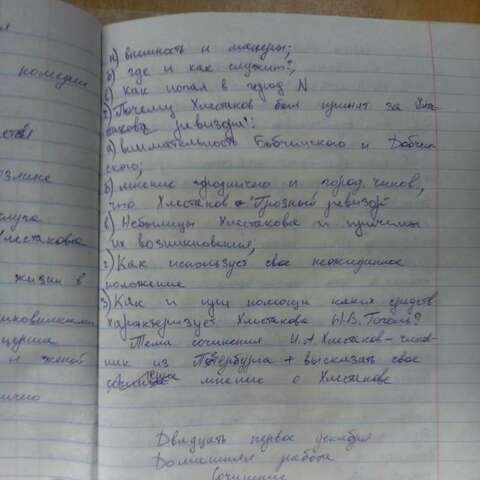 комедии
а) внешность и манеры;
б) где и как служит?;
в) как попал в город N
2) Почему Хлестаков был принят за
ревизора?:
а) внимательность Бобчинского и Добчин-
ского;
б) мнение городничего и город. чинов,
что Хлестаков - "Грозный ревизор"
в) Небылицы Хлестакова и причины
их возникновения;
г) Как использует свое неожиданное
положение
3) Как и при помощи каких средств
характеризует Хлестакова Н.В. Гоголь?
Тема сочинения И.А. Хлестаков - чинов-
ник из Петербурга + высказать свое
мнение о Хлестакове
Двадцать первое декабря
Домашняя работа
Сочинение
Хлестакова
жизни в